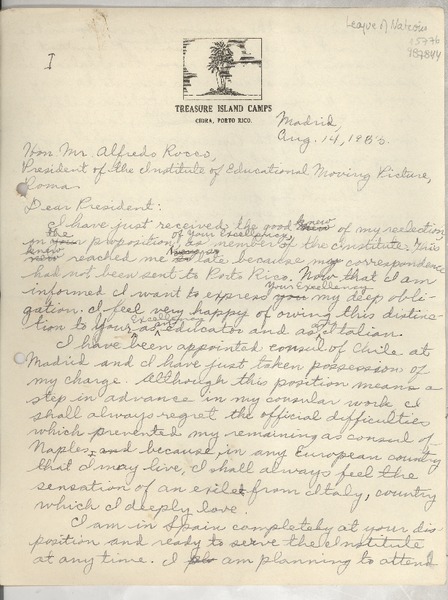 League of Nations
I
TREASURE ISLAND CAMPS
CIDRA, PORTO RICO.
Madrid,
Aug. 14, 1933.
Hon. Mr. Alfredo Rocco,
President of the Institute of Educational Moving Picture,
Roma.
Dear President:
I have just received the good news of my reelection,
in the proposition of your Excellency, as member of the Institute. This
news reached me late because my correspondence
had not been sent to Porto Rico. Now that I am
informed I want to express your Excellency my deep obli-
gation. I feel very happy of owing this distinc-
tion to your excellency as educator and as Italian.
I have been appointed consul of Chile at
Madrid and I have just taken possession of
my charge. Although this position means a
step in advance in my consular work I
shall always regret the official difficulties
which prevented my remaining as consul of
Naples, and because in any European country
that I may live, I shall always feel the
sensation of an exile from Italy, country
which I deeply love.
I am in Spain completely at your dis
position and ready to serve the Institute
at any time. I am planning to attend